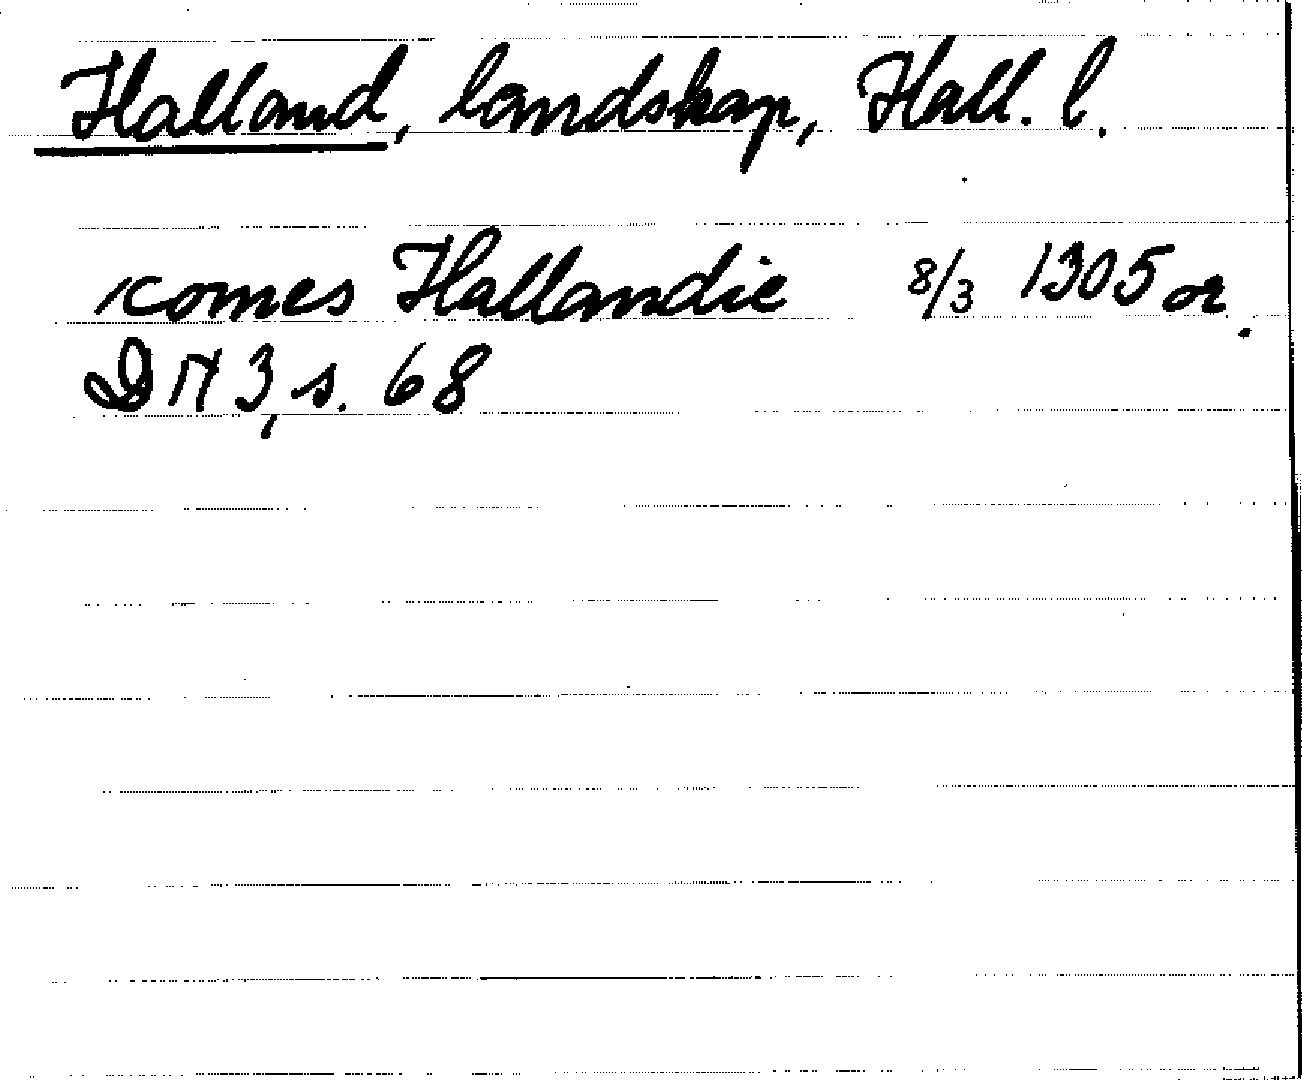 Halland, landskap, Hall. l.
comes Hallandie 8/3 1305 or.
DN 3, s. 68